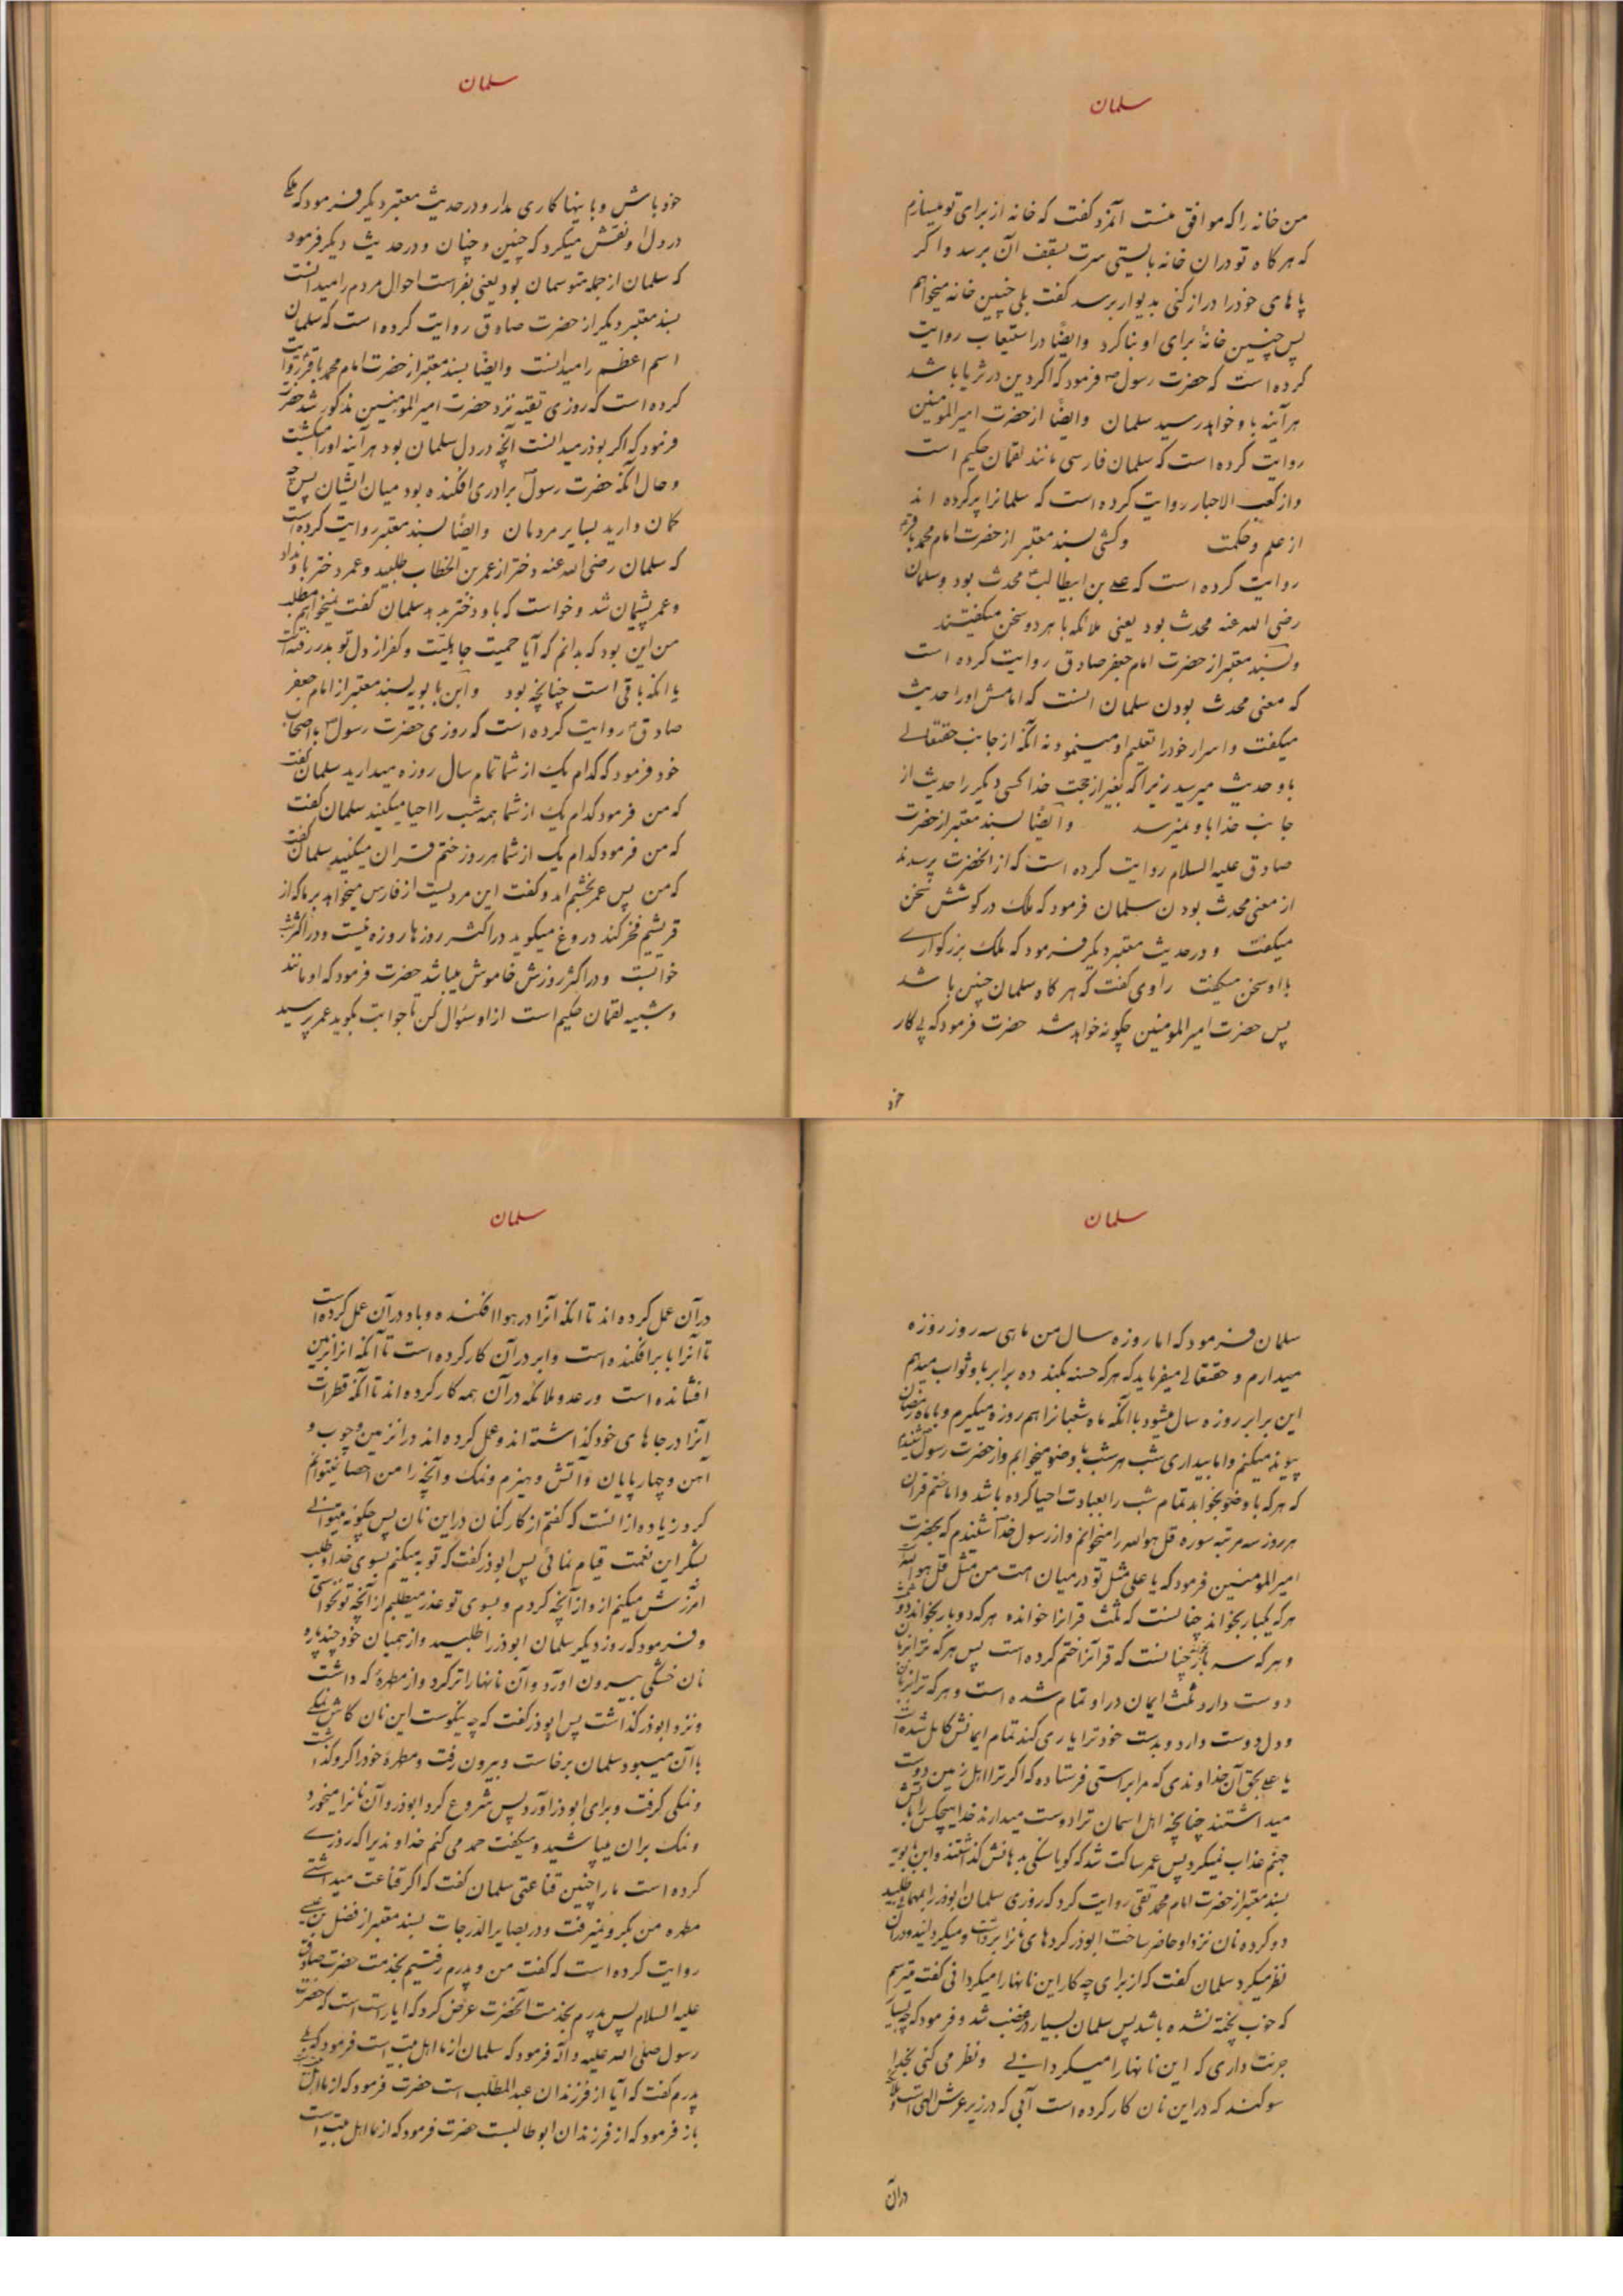 سلمان
من خانه را که موافق منست آنمرد گفت که خانه از برای تو میسازم
که هر کاه تو دران خانه بایستی سرت بسقف آن برسد و اگر
پاهای خود را دراز کنی بدیوار برسد گفت بلی چنین خانه میخواهم
پس چنین خانهٔ برای او بنا کرد وایضًا در استیعاب روایت
کرده است که حضرت رسول ص فرمود که اگر دین در ثریا باشد
هر آینه باو خواهد رسید سلمان وایضًا از حضرت امیرالمومنین
روایت کرده است که سلمان فارسی مانند لقمان حکیم است
واز کعب الاحبار روایت کرده است که سلمانرا پر کرده اند
از علم و حکمت وکشی بسند معتبر از حضرت امام محمد باقر
روایت کرده است که علے بن ابیطالب محدث بود و سلمان
رضی الله عنه محدث بود یعنی ملائکه با هر دو سخن میکفتند
وبسند معتبر از حضرت امام جعفر صادق روایت کرده است
که معنی محدث بودن سلمان انست که امامش او را حدیث
میکفت و اسرار خود را تعلیم او مینمود نه آنکه از جانب حقتعالے
باو حدیث میرسید زیرا که بغیر از حجت خدا کسی دیگر را حدیث از
جانب خدا باو نمیرسد وایضًا بسند معتبر از حضرت
صادق علیه السلام روایت کرده است که از انحضرت پرسیدند
از معنی محدث بودن سلمان فرمود که ملک در گوشش سخن
میکفت و در حدیث معتبر دیگر فرمود که ملک بزرگوارے
با او سخن میکفت راوی گفت که هر کاه سلمان چنین باشد
پس حضرت امیرالمومنین چگونه خواهد شد حضرت فرمود که پی کار
خود
سلمان
خود باش و باینها کاری مدار و در حدیث معتبر دیگر فرمود که ملکے
در دل او نقش میکرد که چنین و چنان و در حدیث دیگر فرمود
که سلمان از جمله متوسمان بود یعنی بفراست احوال مردم را میدانست
بسند معتبر دیگر از حضرت صادق روایت کرده است که سلمان
اسم اعظم را میدانست وایضًا بسند معتبر از حضرت امام محمد باقر روایت
کرده است که روزی تقیه نزد حضرت امیرالمومنین مذکور شد حضرت
فرمود که اگر بوذر میدانست آنچه در دل سلمان بود هر آینه او را میکشت
و حال آنکه حضرت رسول برادری افکنده بود میان ایشان پس چه
کمان دارید بسایر مردمان وایضًا بسند معتبر روایت کرده است
که سلمان رضی الله عنه دختر از عمر بن الخطاب طلبید و عمر دختر باو نداد
و عمر پشیمان شد و خواست که باو دختر بدهد سلمان گفت نمیخواهم مطلب
من این بود که بدانم که آیا حمیت جاهلیت و کفر از دل تو بدر رفته است
یا انکه باقی است چنانچه بود وابن بابویه بسند معتبر از امام جعفر
صادق روایت کرده است که روزی حضرت رسول باصحاب
خود فرمود که کدام یک از شما تمام سال روزه میدارید سلمان گفت
که من فرمود کدام یک از شما همه شب را احیا میکنید سلمان کفت
که من فرمود کدام یک از شما هر روز ختم قران میکنید سلمان گفت
که من پس عمر بخشم امد و گفت این مردیست از فارس میخواهد بر ما که از
قریشیم فخر کند دروغ میکوید در اکثر روزها روزه نیست و در اکثر شب
خوابست و در اکثر روزش خاموش میباشد حضرت فرمود که او مانند
و شبیه لقمان حکیم است از او سئوال کن تا جوابت بکوید عمر پرسید
سلمان
سلمان فرمود که اما روزه سال من ماهی سه روز روزه
میدارم و حقتعالے میفرماید که هر که حسنه بکند ده برابر باو ثواب میدهم
این برابر روزه سال میشود با آنکه ماه شعبانرا هم روزه میکیرم و بماه رمضان
پیوند میکنم واما بیداری شب هر شب با وضو میخوابم واز حضرت رسول شنیدم
که هر که با وضو بخوابد تمام شب را بعبادت احیا کرده باشد واما ختم قران
هر روز سه مرتبه سوره قل هو الله را میخوانم واز رسول خدا شنیدم که بحضرت
امیرالمومنین فرمود که یا علی مثل تو در میان امت من مثل قل هو الله است
هر که یکبار بخواند چنانست که ثلث قرانرا خوانده هر که دو بار بخواند دو ثلث
و هر که سه بار چنانست که قرآنرا ختم کرده است پس هر که ترا بزبان
دوست دارد ثلث ایمان در او تمام شده است و هر که ترا بزبان
و دل دوست دارد و بدست خود ترا یاری کند تمام ایمانش کامل شده است
یا علے بحق آن خداوندی که مرا براستی فرستاده که اگر ترا اهل زمین دوست
میداشتند چنانچه اهل اسمان ترا دوست میدارند خدا هیچکس را باتش
جهنم عذاب نمیکرد پس عمر ساکت شد که گویا سنگی بدهانش گذاشتند وابن بابویه
بسند معتبر از حضرت امام محمد تقی روایت کرد که روزی سلمان ابوذر را بمهمانی طلبید
دو کرده نان نزد او حاضر ساخت ابوذر کردهای نانرا برداشت و میکردانید و دران
نظر میکرد سلمان گفت که از برای چه کار این نانها را میکردانی گفت میترسم
که خوب پخته نشده باشد پس سلمان بسیار در غضب شد و فرمود که چه بسیار
جرئت داری که این نانها را میکردانے و نظر می کنی بخدا
سوکند که در این نان کار کرده است آبی که در زیر عرش الهی است و ملائکه
درآن
سلمان
درآن عمل کرده اند تا انکه آنرا در هوا افکنده و باد درآن عمل کرده است
تا آنرا بابر افکنده است و ابر درآن کار کرده است تا آنکه انرا بزمین
افشانده است و رعد و ملائکه درآن همه کار کرده اند تا آنکه قطرات
انرا در جاهای خود گذاشته اند و عمل کرده اند در انزمین و چوب و
آهن و چهار پایان و آتش و هیزم و نمک و آنچه را من احصا نمیتوانم
کرد زیاده از انست که گفتم از کارکنان در این نان پس چگونه میتوانے
بشکر این نعمت قیام نمائی پس ابوذر گفت که توبه میکنم بسوی خدا و طلب
امرزش میکنم از او از آنچه کردم و بسوی تو عذر میطلبم از آنچه تو نخواستی
و فرمود که روز دیگر سلمان ابوذر را طلبید و از همیان خود چند پاره
نان خشکی بیرون اورد و آن نانها را تر کرد و از مطهرهٔ که داشت
و نزد ابوذر گذاشت پس ابوذر گفت که چه نیکوست این نان کاش نمکے
با آن میبود سلمان برخاست و بیرون رفت و مطهرهٔ خود را گرو گذاشت
و نمکی گرفت و برای ابوذر آورد پس شروع کرد ابوذر و آن نانرا میخورد
و نمک بران میپاشید و میکفت حمد می کنم خداوندیرا که روزے
کرده است ما را چنین قناعتی سلمان گفت که اگر قناعت میداشتے
مطهره من بگرو نمیرفت و در بصایر الدرجات بسند معتبر از فضل بن عیسے
روایت کرده است که گفت من و پدرم رفتیم بخدمت حضرت صادق
علیه السلام پس پدرم بخدمت آنحضرت عرض کرد که ایا راست است که حضرت
رسول صلی الله علیه وآله فرمود که سلمان از ما اهل بیت است فرمود که بلے
پدرم گفت که آیا از فرزندان عبدالمطلب است حضرت فرمود که از ما اهل بیت است
باز فرمود که از فرزندان ابوطالبست حضرت فرمود که از ما اهل بیت است